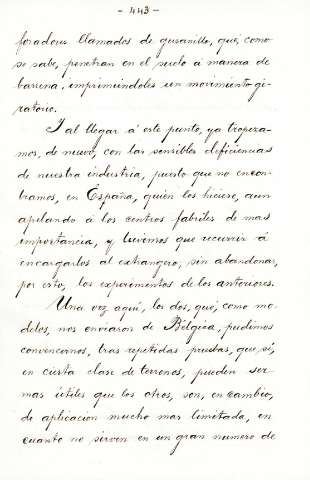 - 443 -
foradores llamados de gusanillo, que, como
se sabe, penetran en el suelo á manera de
barrena, imprimiéndoles un movimiento gi-
ratorio.
Y al llegar á este punto, ya tropeza-
mos, de nuevo, con las sensibles deficiencias
de nuestra industria, puesto que no encon-
tramos, en España, quien los hiciese, aun
apelando á los centros fabriles de mas
importancia, y tuvimos que recurrir á
encargarlos al extrangero, sin abandonar,
por esto, los experimentos de los anteriores.
Una vez aquí, los dos, que, como mo-
delos, nos enviaron de Bélgica, pudimos
convencernos, tras repetidas pruebas, que, si,
en cierta clase de terrenos, pueden ser
mas útiles que los otros, son, en cambio,
de aplicacion mucho mas limitada, en
cuanto no sirven en un gran numero de